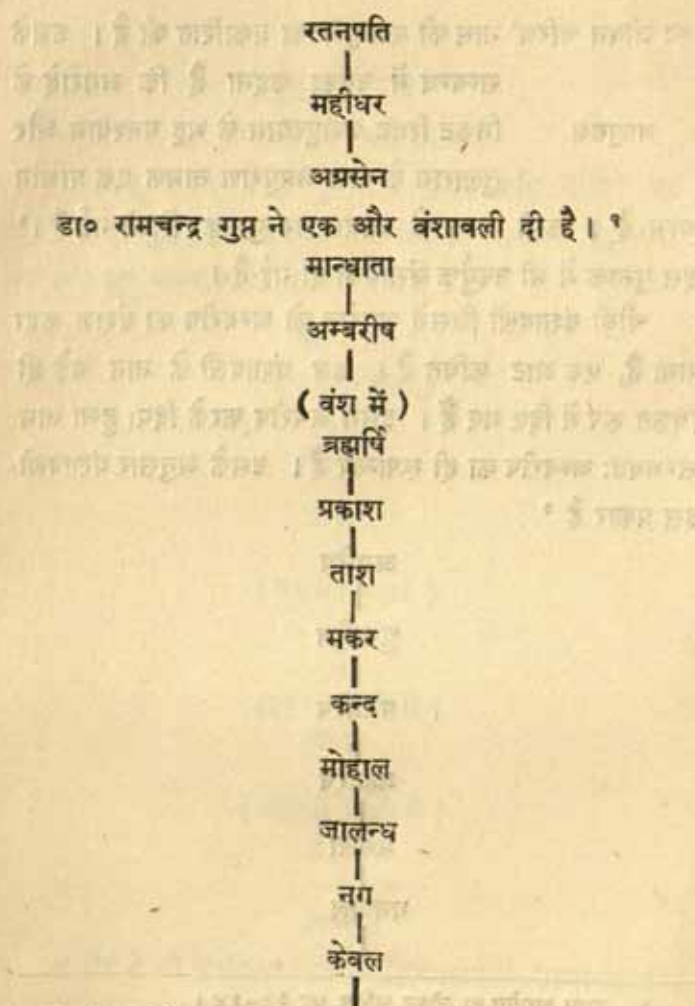 रतनपति
महीधर
अग्रसेन
डा० रामचन्द्र गुप्त ने एक और वंशावली दी है। १
मान्धाता
अम्बरीष
( वंश में )
ब्रह्मर्षि
प्रकाश
ताश
मकर
कन्द
मोहाल
जालन्ध
नग
केवल